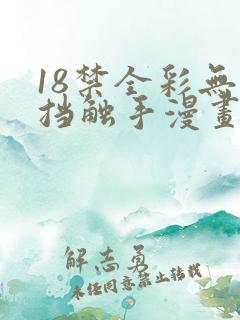 18禁全彩無
挡触手漫畫
解志勇
未经同意禁止转载